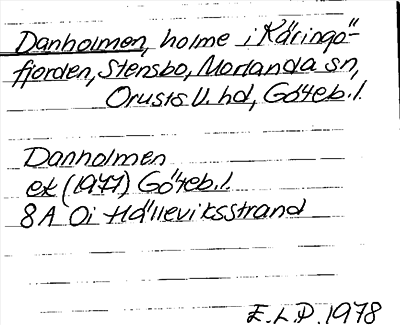 Danholmen, holme i Käringö-
fjorden, Stensbo, Morlanda sn,
Orusts V. hd, Göteb. l.
Danholmen
ek (1977) Göteb. l.
8A Oi Hälleviksstrand
E.L.P. 1978